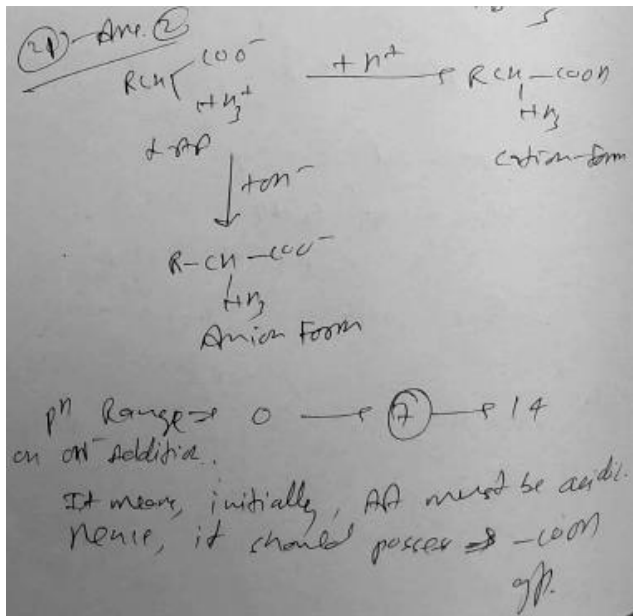 29-Ans. 2
COO⁻
RCH + H⁺ → RCH–COOH
HN₃⁺ HN₃
α-AA Cation-form
↓ +OH⁻
R–CH–COO⁻
HN₃
Anion Form
pH Range ⇒ 0 → 7 → 14
on OH⁻ Addition.
It means, initially, AA must be acidic.
Hence, it should posses –COOH
gp.